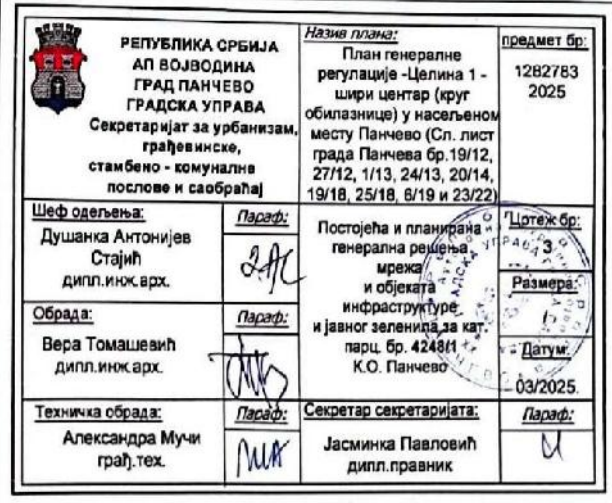 РЕПУБЛИКА СРБИЈА
АП ВОЈВОДИНА
ГРАД ПАНЧЕВО
ГРАДСКА УПРАВА
Секретаријат за урбанизам,
грађевинске,
стамбено - комуналне
послове и саобраћај
Назив плана:
План генералне
регулације -Целина 1 -
шири центар (круг
обилазнице) у насељеном
месту Панчево (Сл. лист
града Панчева бр.19/12,
27/12, 1/13, 24/13, 20/14,
19/18, 25/18, 6/19 и 23/22)
предмет бр:
1282783
2025
Шеф одељења:
Душанка Антонијев
Стајић
дипл.инж.арх.
Параф:
Постојећа и планирана
генерална решења
мрежа
и објеката
инфраструктуре
и јавног зеленила за кат.
парц. бр. 4248/1
К.О. Панчево
Цртеж бр:
3.
Размера:
/
Датум:
03/2025.
Обрада:
Вера Томашевић
дипл.инж.арх.
Параф:
Техничка обрада:
Александра Мучи
грађ.тех.
Параф:
Секретар секретаријата:
Јасминка Павловић
дипл.правник
Параф: